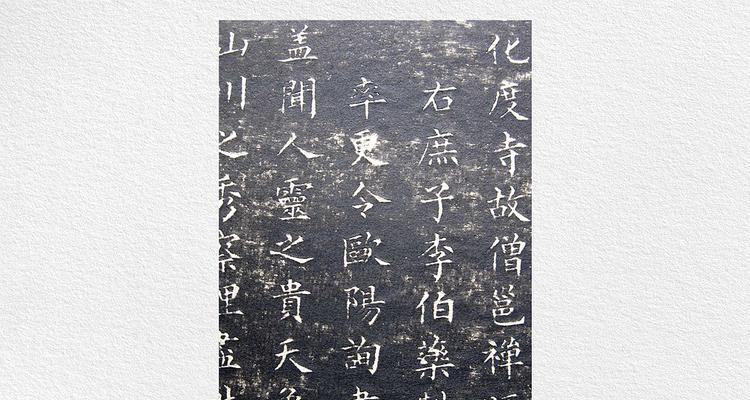 化度寺故僧邕禪
右庶子李伯藥
率更令歐陽詢
盖聞人靈之貴天
山川之秀察理盡